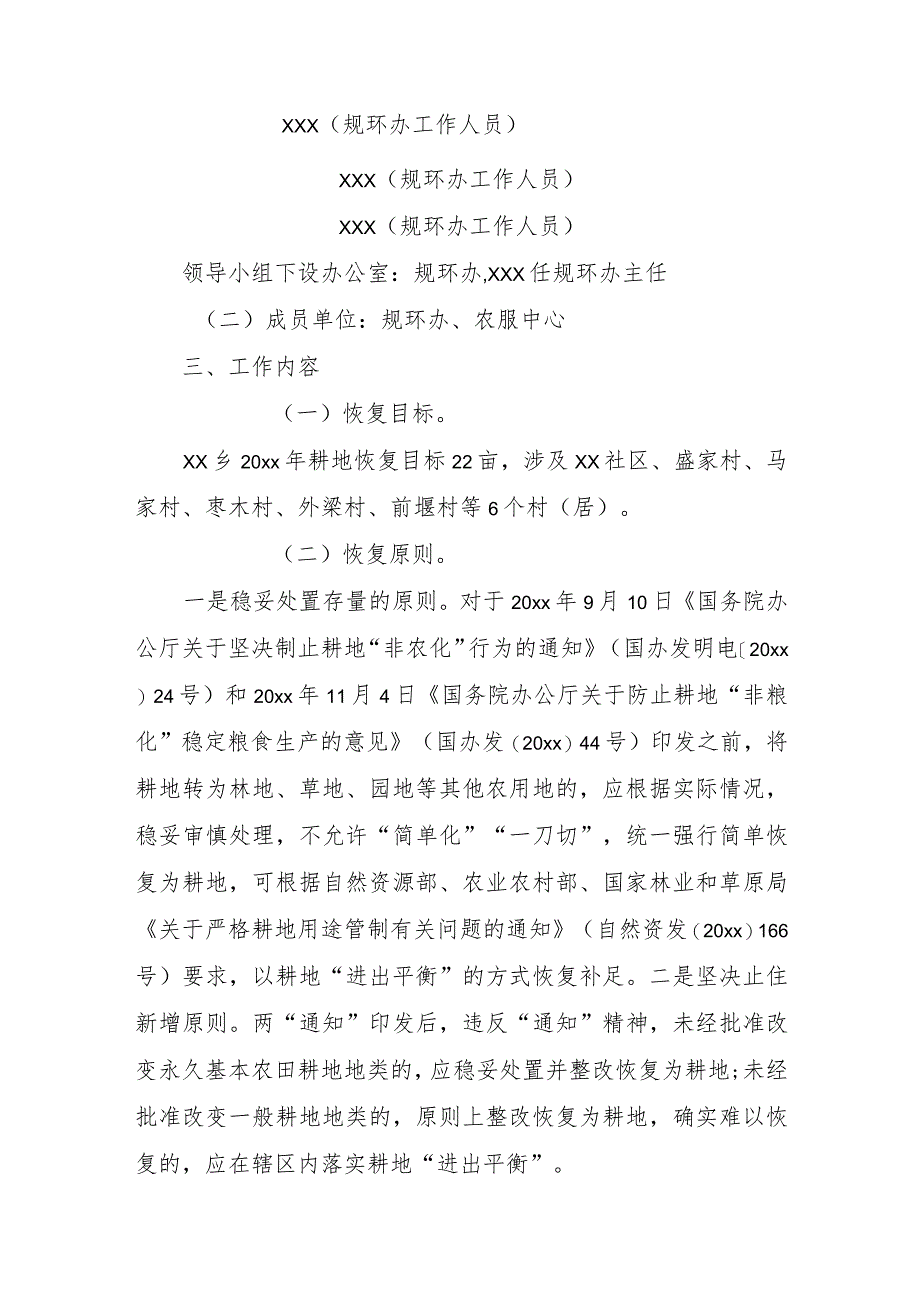 XXX（规环办工作人员）
XXX（规环办工作人员）
XXX（规环办工作人员）
领导小组下设办公室：规环办,XXX 任规环办主任
（二）成员单位：规环办、农服中心
三、工作内容
（一）恢复目标。
XX 乡 20xx 年耕地恢复目标 22 亩，涉及 XX 社区、盛家村、马
家村、枣木村、外梁村、前堰村等 6 个村（居）。
（二）恢复原则。
一是稳妥处置存量的原则。对于 20xx 年 9 月 10 日《国务院办
公厅关于坚决制止耕地“非农化”行为的通知》（国办发明电〔20xx
）24 号）和 20xx 年 11 月 4 日《国务院办公厅关于防止耕地“非粮
化”稳定粮食生产的意见》（国办发（20xx）44 号）印发之前，将
耕地转为林地、草地、园地等其他农用地的，应根据实际情况，
稳妥审慎处理，不允许“简单化”“一刀切”，统一强行简单恢
复为耕地，可根据自然资源部、农业农村部、国家林业和草原局
《关于严格耕地用途管制有关问题的通知》（自然资发（20xx）166
号）要求，以耕地“进出平衡”的方式恢复补足。二是坚决止住
新增原则。两“通知”印发后，违反“通知”精神，未经批准改
变永久基本农田耕地地类的，应稳妥处置并整改恢复为耕地;未经
批准改变一般耕地地类的，原则上整改恢复为耕地，确实难以恢
复的，应在辖区内落实耕地“进出平衡”。